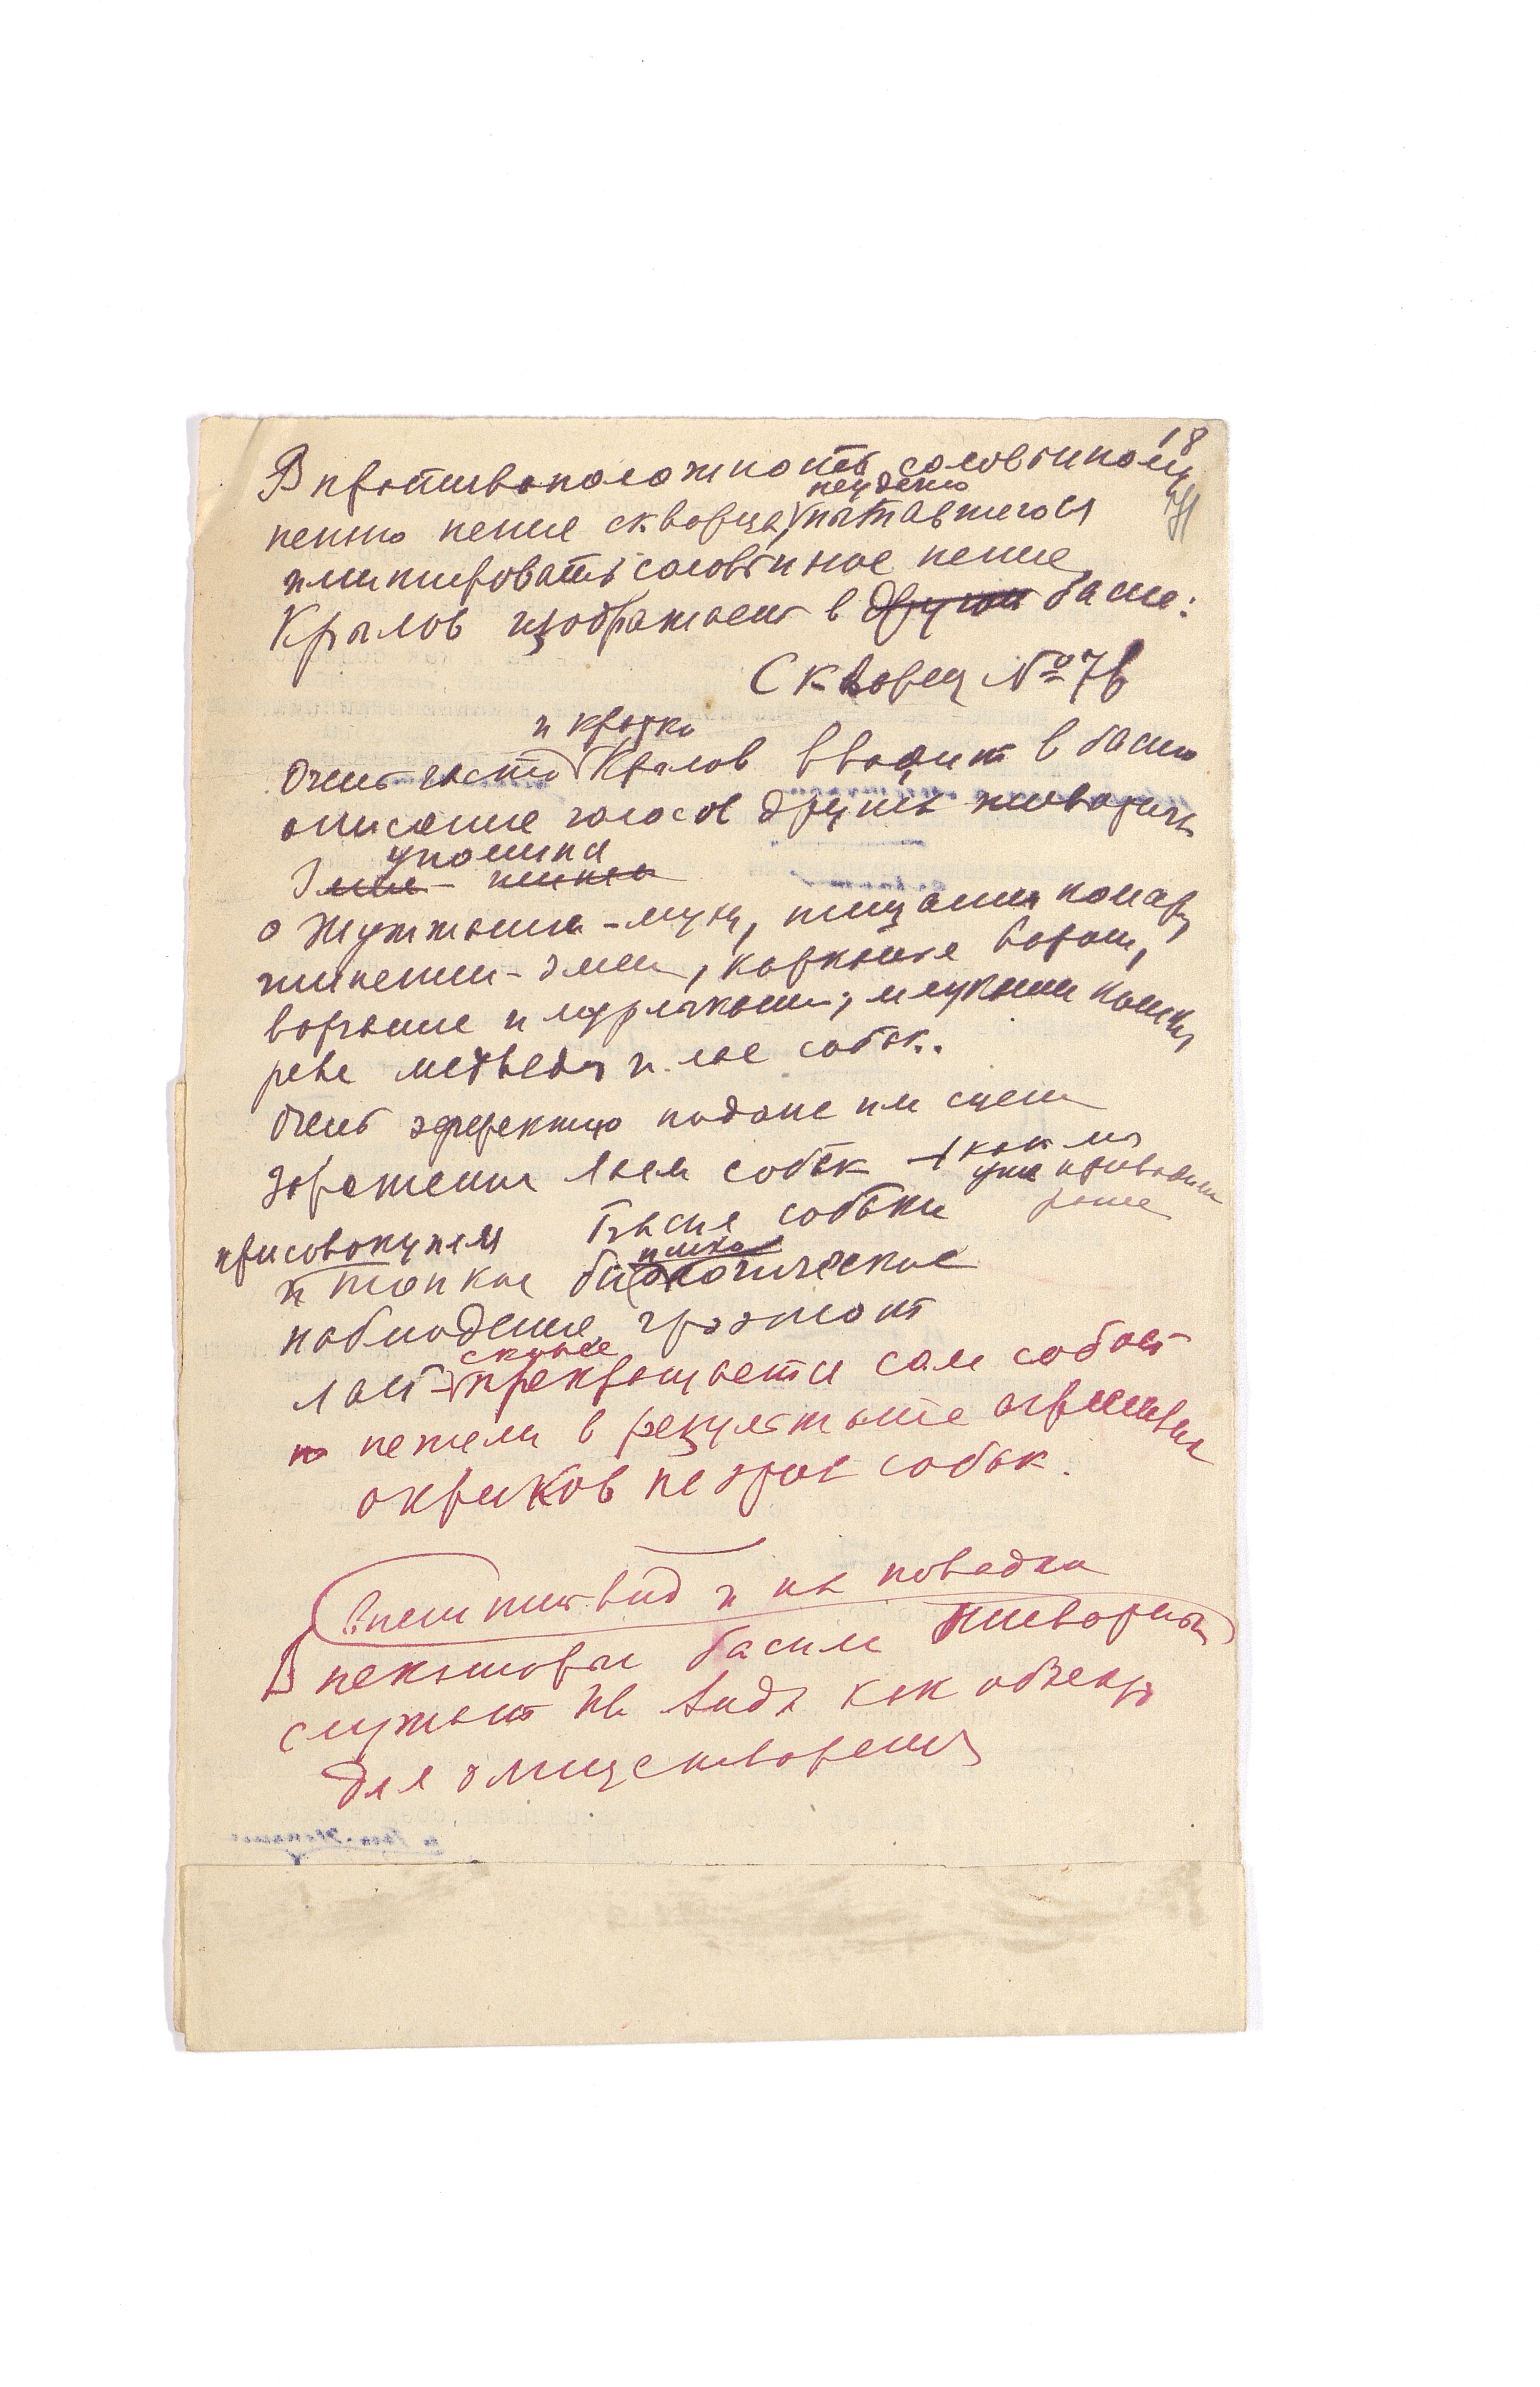 18
В противоположность соловьиному
неудачно
пению пение скворца, пытавшегося
имитировать соловьиное пение,
Крылов изображает в другой басне:
Скворец № 7в
и кратко
Очень часто Крылов вводит в басню
описание голосов других животных
упоминая
Змея - шипела
о жужжании - мухи, пищании комара,
шипении - змеи, карканье ворон,
ворчание и мурлыканье, мяуканье кошки,
реве медведя и лае собак.
Очень эффектно подана им сцена
заражения лаем собак - как мы
уже приводили
ранее
присовокупляя басня собаки
и тонкое биологическое
наблюдение
скорее
лай - прекращается сам собой
нежели в результате
окриков не злых собак.
Внешний вид и их повадки
В некоторых баснях животные
служат их вида как объект
для олицетворения